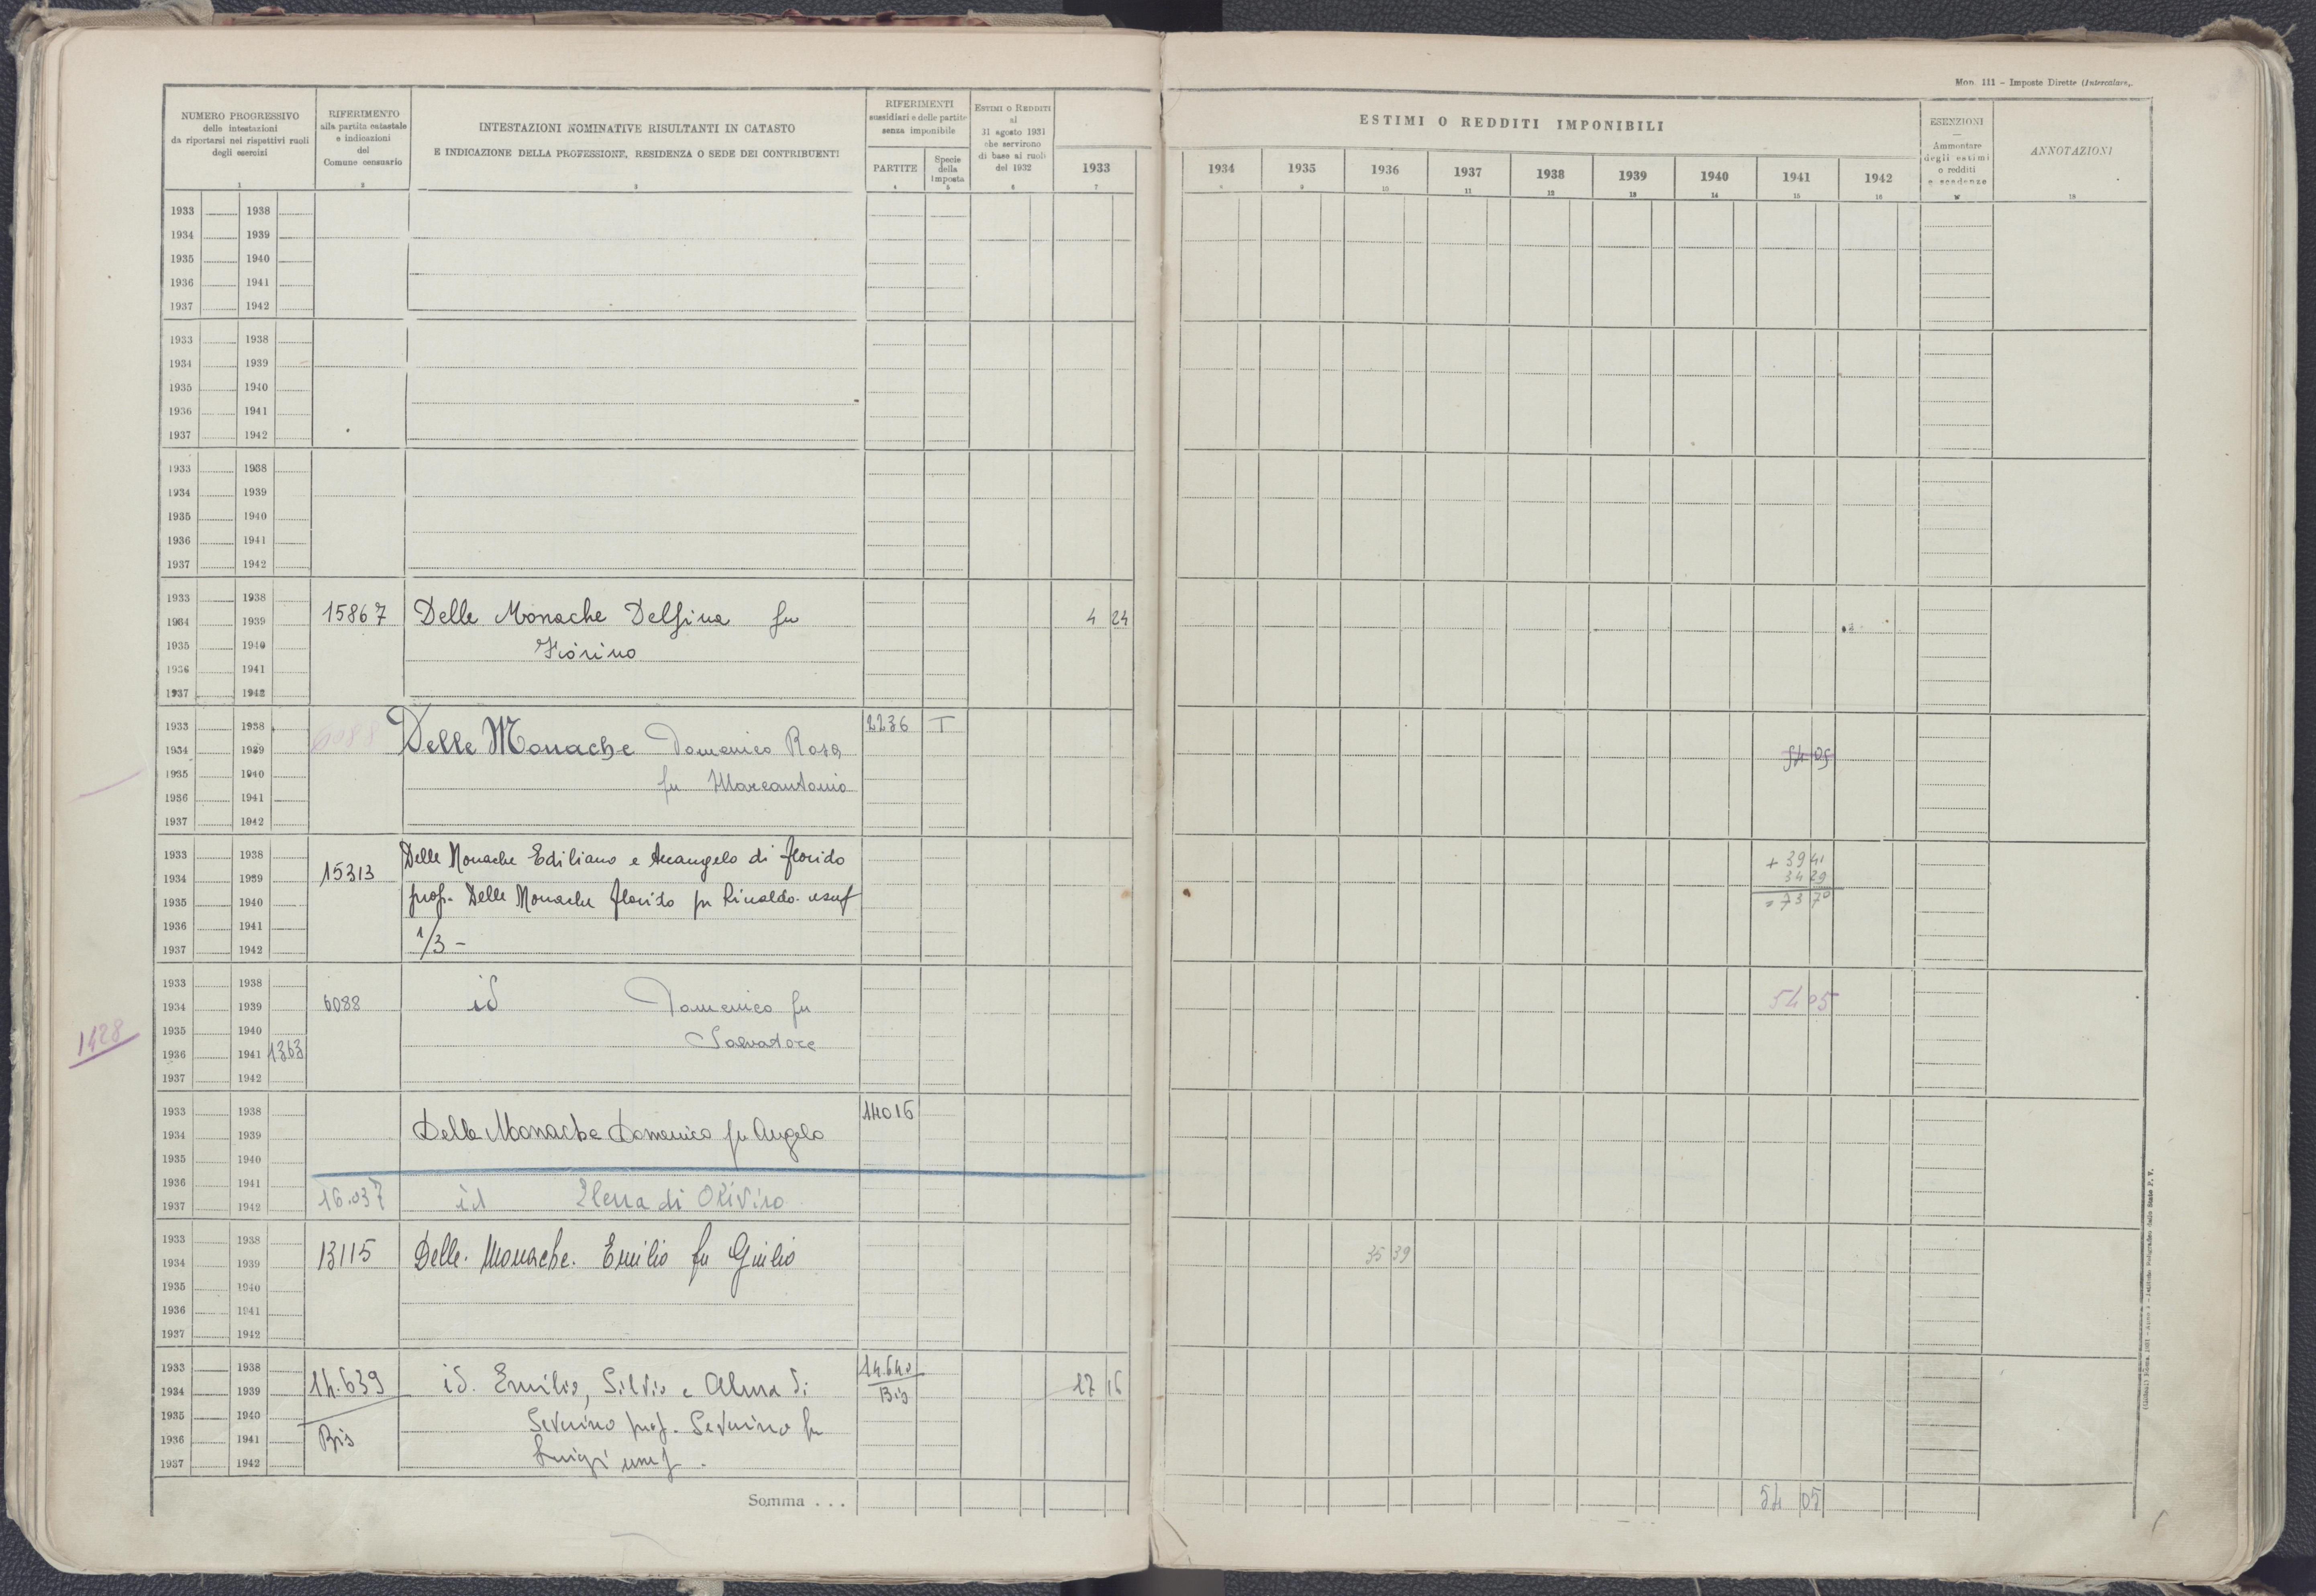 Mod. 111 - Imposte Dirette (Intercalare).
NUMERO PROGRESSIVO
delle intestazioni
da riportarsi nei rispettivi ruoli
degli esercizi
1
RIFERIMENTO
alla partita catastale
e indicazioni
del
Comune censuario
2
INTESTAZIONI NOMINATIVE RISULTANTI IN CATASTO
E INDICAZIONE DELLA PROFESSIONE, RESIDENZA O SEDE DEI CONTRIBUENTI
3
RIFERIMENTI
sussidiari e delle partite
senza imponibile
PARTITE
4
Specie
della
Imposta
5
ESTIMI O REDDITI
al
31 agosto 1931
che servirono
di base ai ruoli
del 1932
6
1933
7
ESTIMI O REDDITI IMPONIBILI
1934 1935 1936 1937 1938 1939 1940 1941 1942
8 9 10 11 12 13 14 15 16
ESENZIONI
—
Ammontare
degli estimi
o redditi
e scadenze
ANNOTAZIONI
18
1933 1938
1934 1939
1935 1940
1936 1941
1937 1942
1933 1938
1934 1939
1935 1940
1936 1941
1937 1942
1933 1938
1934 1939
1935 1940
1936 1941
1937 1942
1933 1938
1934 1939 15867 Delle Monache Delfina fu 4 24
1935 1940 Fiorino
1936 1941
1937 1942
1933 1938 6088 2236 T
1934 1939 Delle Monache Domenico Rosa 54 05
1935 1940 fu Marcantonio
1936 1941
1937 1942
1933 1938 Delle Monache Ediliano e Arcangelo di Florido + 39 41
1934 1939 15313 34 29
1935 1940 prop. Delle Monache Florido fu Rinaldo usuf = 73 70
1936 1941
1937 1942 1/3 -
1933 1938
1934 1939 6088 id Domenico fu 54 05
1935 1940 Salvatore
1428 1936 1941 1363
1937 1942
1933 1938 14016
1934 1939 Delle Monache Domenico fu Angelo
1935 1940
1936 1941
1937 1942 16.037 id Elena di Olivino
1933 1938
1934 1939 13115 Delle Monache Emilio fu Giulio 35 39
1935 1940
1936 1941
1937 1942
1933 1938 14.640
1934 1939 14.639 id. Emilio, Silvio e Alma di Bis 17 16
1935 1940 Severino prop. Severino fu
1936 1941 Bis
1937 1942 Luigi usuf.
Somma . . . 54 05